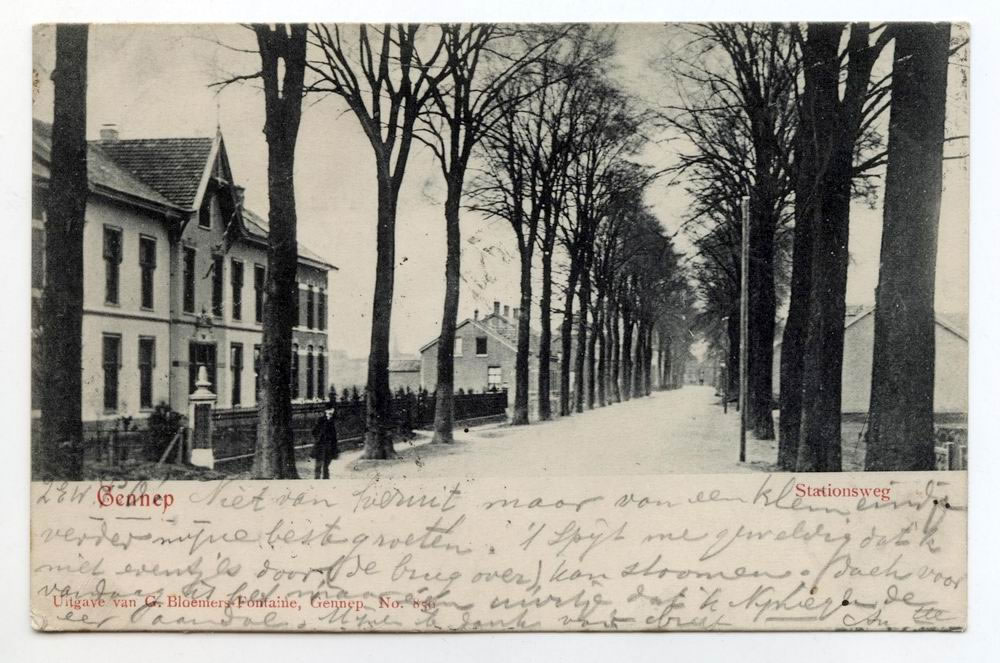 Gennep
Stationsweg
Niet van hieruit maar van een klein eindje
verder mijne beste groeten. 't Spijt me geweldig dat ik
niet eventjes door (de brug over) kan stoomen. doch voor
vandaag is het maar één uurtje dat ik Nijmegen de
Uitgave van G. Bloemers-Fontaine, Gennep. No. 856
eer